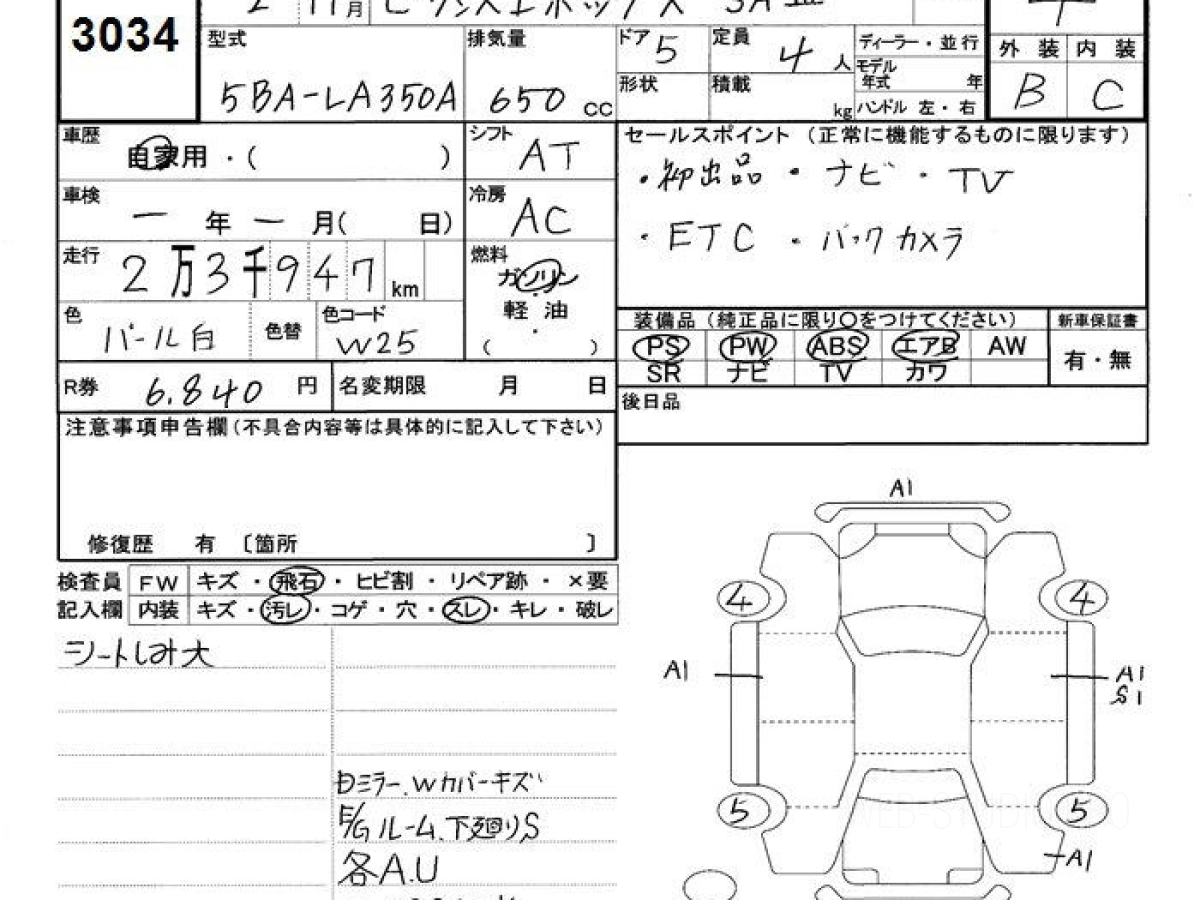 3034
2 11月 ピクシスエポック X SAⅢ
型式 5BA-LA350A
排気量 650 cc
ドア 5
定員 4 人
形状
積載 kg
ディーラー・並行
モデル年式 年
ハンドル 左・右
外装 内装
B C
車歴 自家用・( )
シフト AT
車検 一 年 一 月( 日)
冷房 AC
走行 2万3千947 km
燃料 ガソリン
軽・油
・
( )
色 パール白 色替 色コード W25
R券 6.840 円 名変期限 月 日
セールスポイント (正常に機能するものに限ります)
・初出品 ・ナビ ・TV
・ETC ・バックカメラ
装備品 (純正品に限り○をつけてください) 新車保証書
PS PW ABS エアB AW 有・無
SR ナビ TV カワ
後日品
注意事項申告欄(不具合内容等は具体的に記入して下さい)
修復歴 有 〔箇所 〕
検査員 FW キズ・飛石・ヒビ割・リペア跡・×要
記入欄 内装 キズ・汚レ・コゲ・穴・スレ・キレ・破レ
シートしみ大
Dミラー.Wカバーキズ
E/Gルーム.下廻りS
各A.U
A1
4 4
A1 A1
S1
5 5
A1